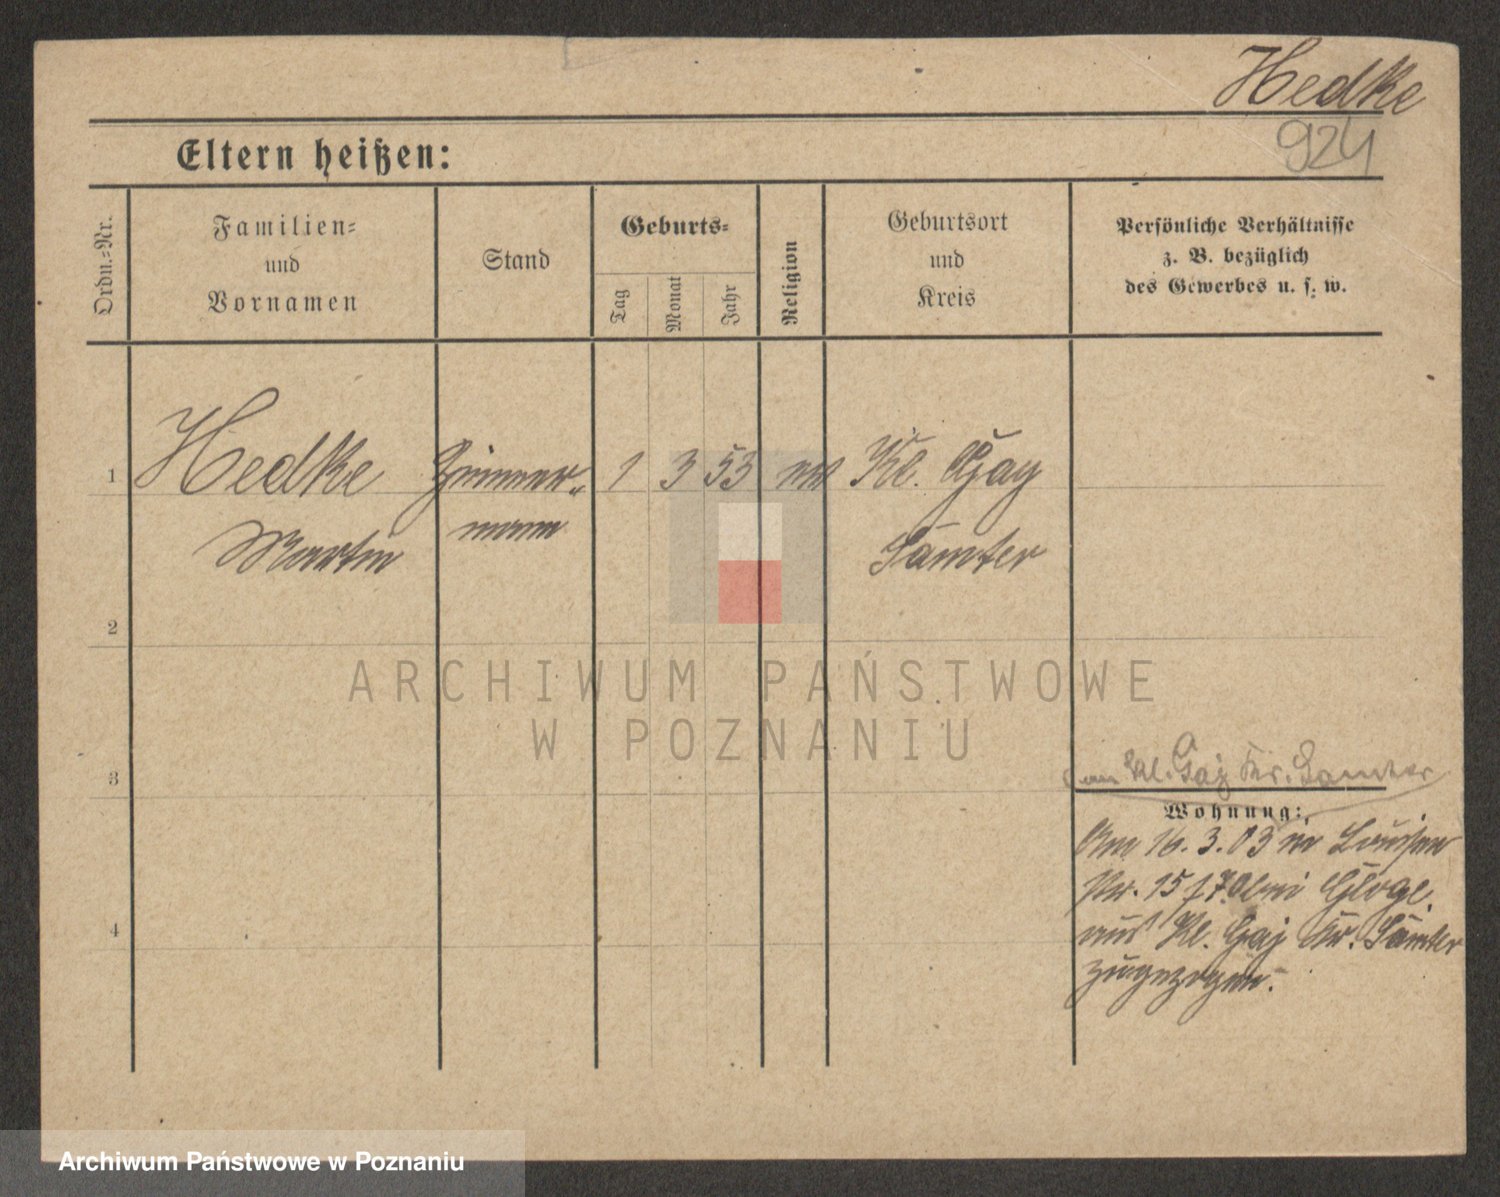 Hedke
924
Eltern heißen:
Ordn.=Nr.
Familien=
und
Vornamen
Stand
Geburts=
Tag
Monat
Jahr
Religion
Geburtsort
und
Kreis
Persönliche Verhältnisse
z. B. bezüglich
des Gewerbes u. s. w.
1
Hedke
Martin
Zimmer-
mann
1
3
53
ev
Kl. Gay
Samter
2
3
4
Kl. Gaj Kr. Samter
Wohnung:
Am 16. 3. 03 in Louisen
Nr. 15 bei Gloge.
aus Kl. Gaj Kr. Samter
zugezogen.
ARCHIWUM PAŃSTWOWE
W POZNANIU
Archiwum Państwowe w Poznaniu